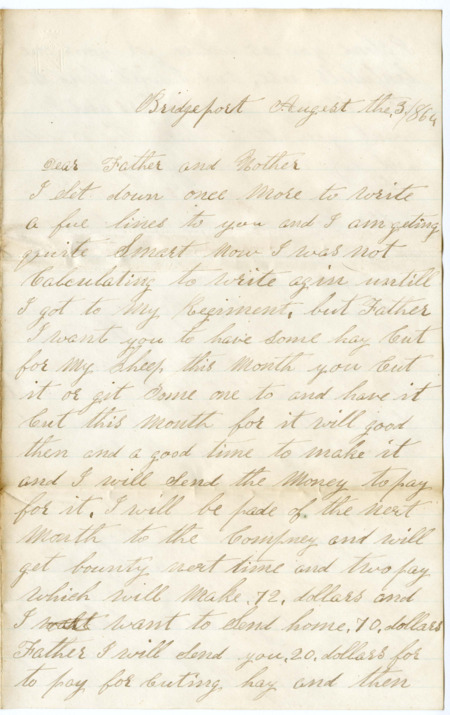 Bridgeport Augest the, 3/1864
Dear Father and Mother
I set down once More to write
a fue lines to you and I am geting
quite Smart now I was not
Calculating to write agin untill
I got to My Regiment, but Father
I want you to have some hay Cut
for My Sheep this Month you Cut
it or git Some one to and have it
Cut this Month for it will good
then and a good time to make it
and I will Send the Money to pay
for it. I will be pade of the next
Month to the Compney and will
get bounty next time and two pay
which will Make .72. dollars and
I want to Send home .70. dollars
Father I will Send you .20. dollars for
to pay for Cuting hay and then